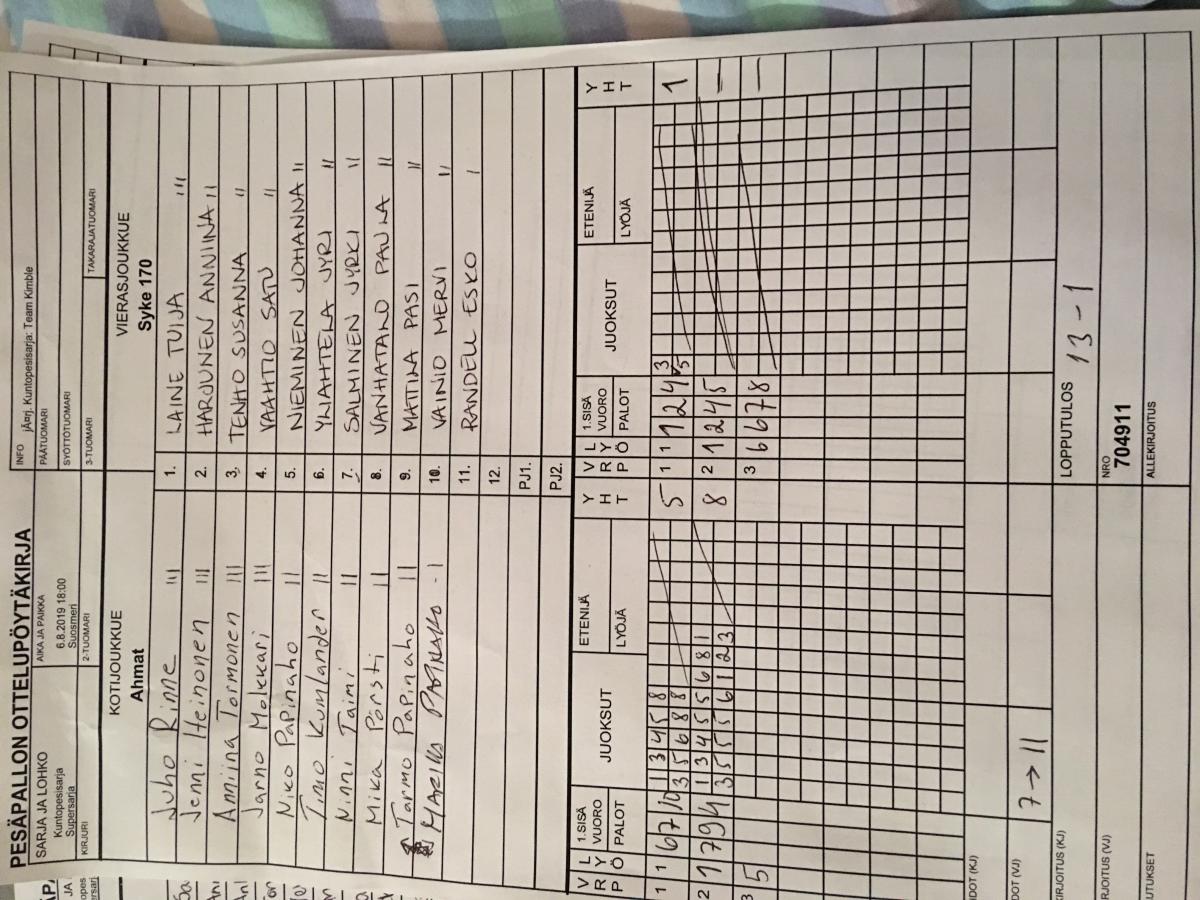 PESÄPALLON OTTELUPÖYTÄKIRJA
SARJA JA LOHKO
Kuntopesisarja
Supersarja
AIKA JA PAIKKA
6.8.2019 18:00
Suosmeri
INFO jÄrrj. Kuntopesisarja: Team Kimble
PÄÄTUOMARI
SYÖTTÖTUOMARI
KIRJURI
2-TUOMARI
3-TUOMARI
TAKARAJATUOMARI
KOTIJOUKKUE
Ahmat
VIERASJOUKKUE
Syke 170
Juho Rinne III
1. LAINE TUIJA III
Jenni Heinonen III
2. HARJUNEN ANNIINA II
Anniina Tormonen III
3. TENHO SUSANNA II
Janno Molkkari III
4. VAAHTIO SATU II
Niko Papinaho II
5. NIEMINEN JOHANNA II
Timo Kumlander II
6. YLIAHTELA JYRI II
Ninni Taimi II
7. SALMINEN JYRKI II
Mika Pörsti II
8. VANHATALO PAULA II
Tarmo Papinaho II
9. MATTILA PASI II
10. VAINIO MERVI II
11. RANDELL ESKO I
12.
PJ1.
PJ2.
V R P
L Y Ö
1.SISÄ VUORO PALOT
JUOKSUT
ETENIJÄ
LYÖJÄ
Y H T
V R P
L Y Ö
1.SISÄ VUORO PALOT
JUOKSUT
ETENIJÄ
LYÖJÄ
Y H T
1 1 6 7 10
1 3 4 5 8
3 5 6 8 8
5
1 1 1 2 4
3
5
1
2 1 7 9 4
1 3 4 5 5 6 8 1
3 5 5 5 6 1 2 3
8
2 1 2 4 5
–
3 5
3 6 6 7 8
–
DOT (KJ)
DOT (VJ)
7 → 11
RJOITUS (KJ)
LOPPUTULOS 13 - 1
RJOITUS (VJ)
NRO
704911
UTUKSET
ALLEKIRJOITUS